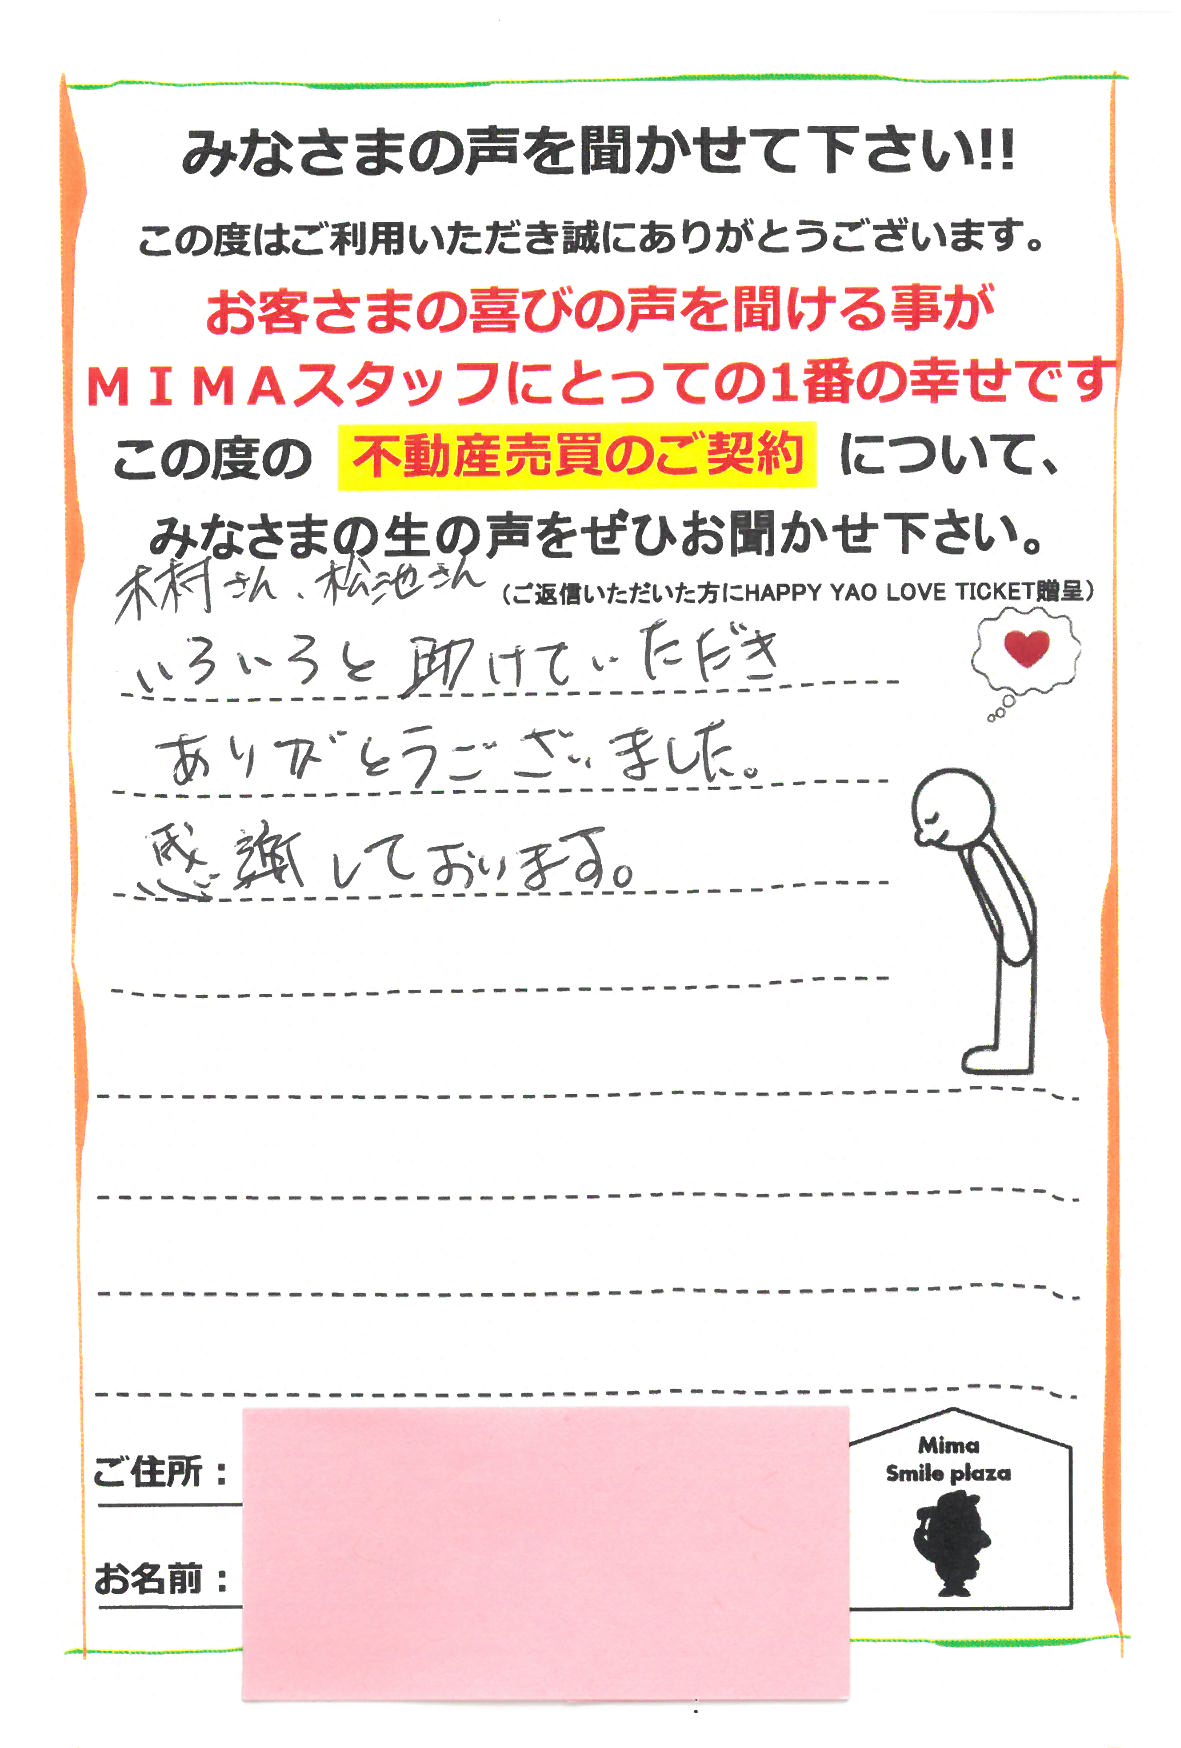 みなさまの声を聞かせて下さい!!
この度はご利用いただき誠にありがとうございます。
お客さまの喜びの声を聞ける事が
ＭＩＭＡスタッフにとっての1番の幸せです
この度の 不動産売買のご契約 について、
みなさまの生の声をぜひお聞かせ下さい。
（ご返信いただいた方にHAPPY YAO LOVE TICKET贈呈）
木村さん、松池さん
いろいろと助けていただき
ありがとうございました。
感謝しております。
Mima
Smile plaza
ご住所：
お名前：